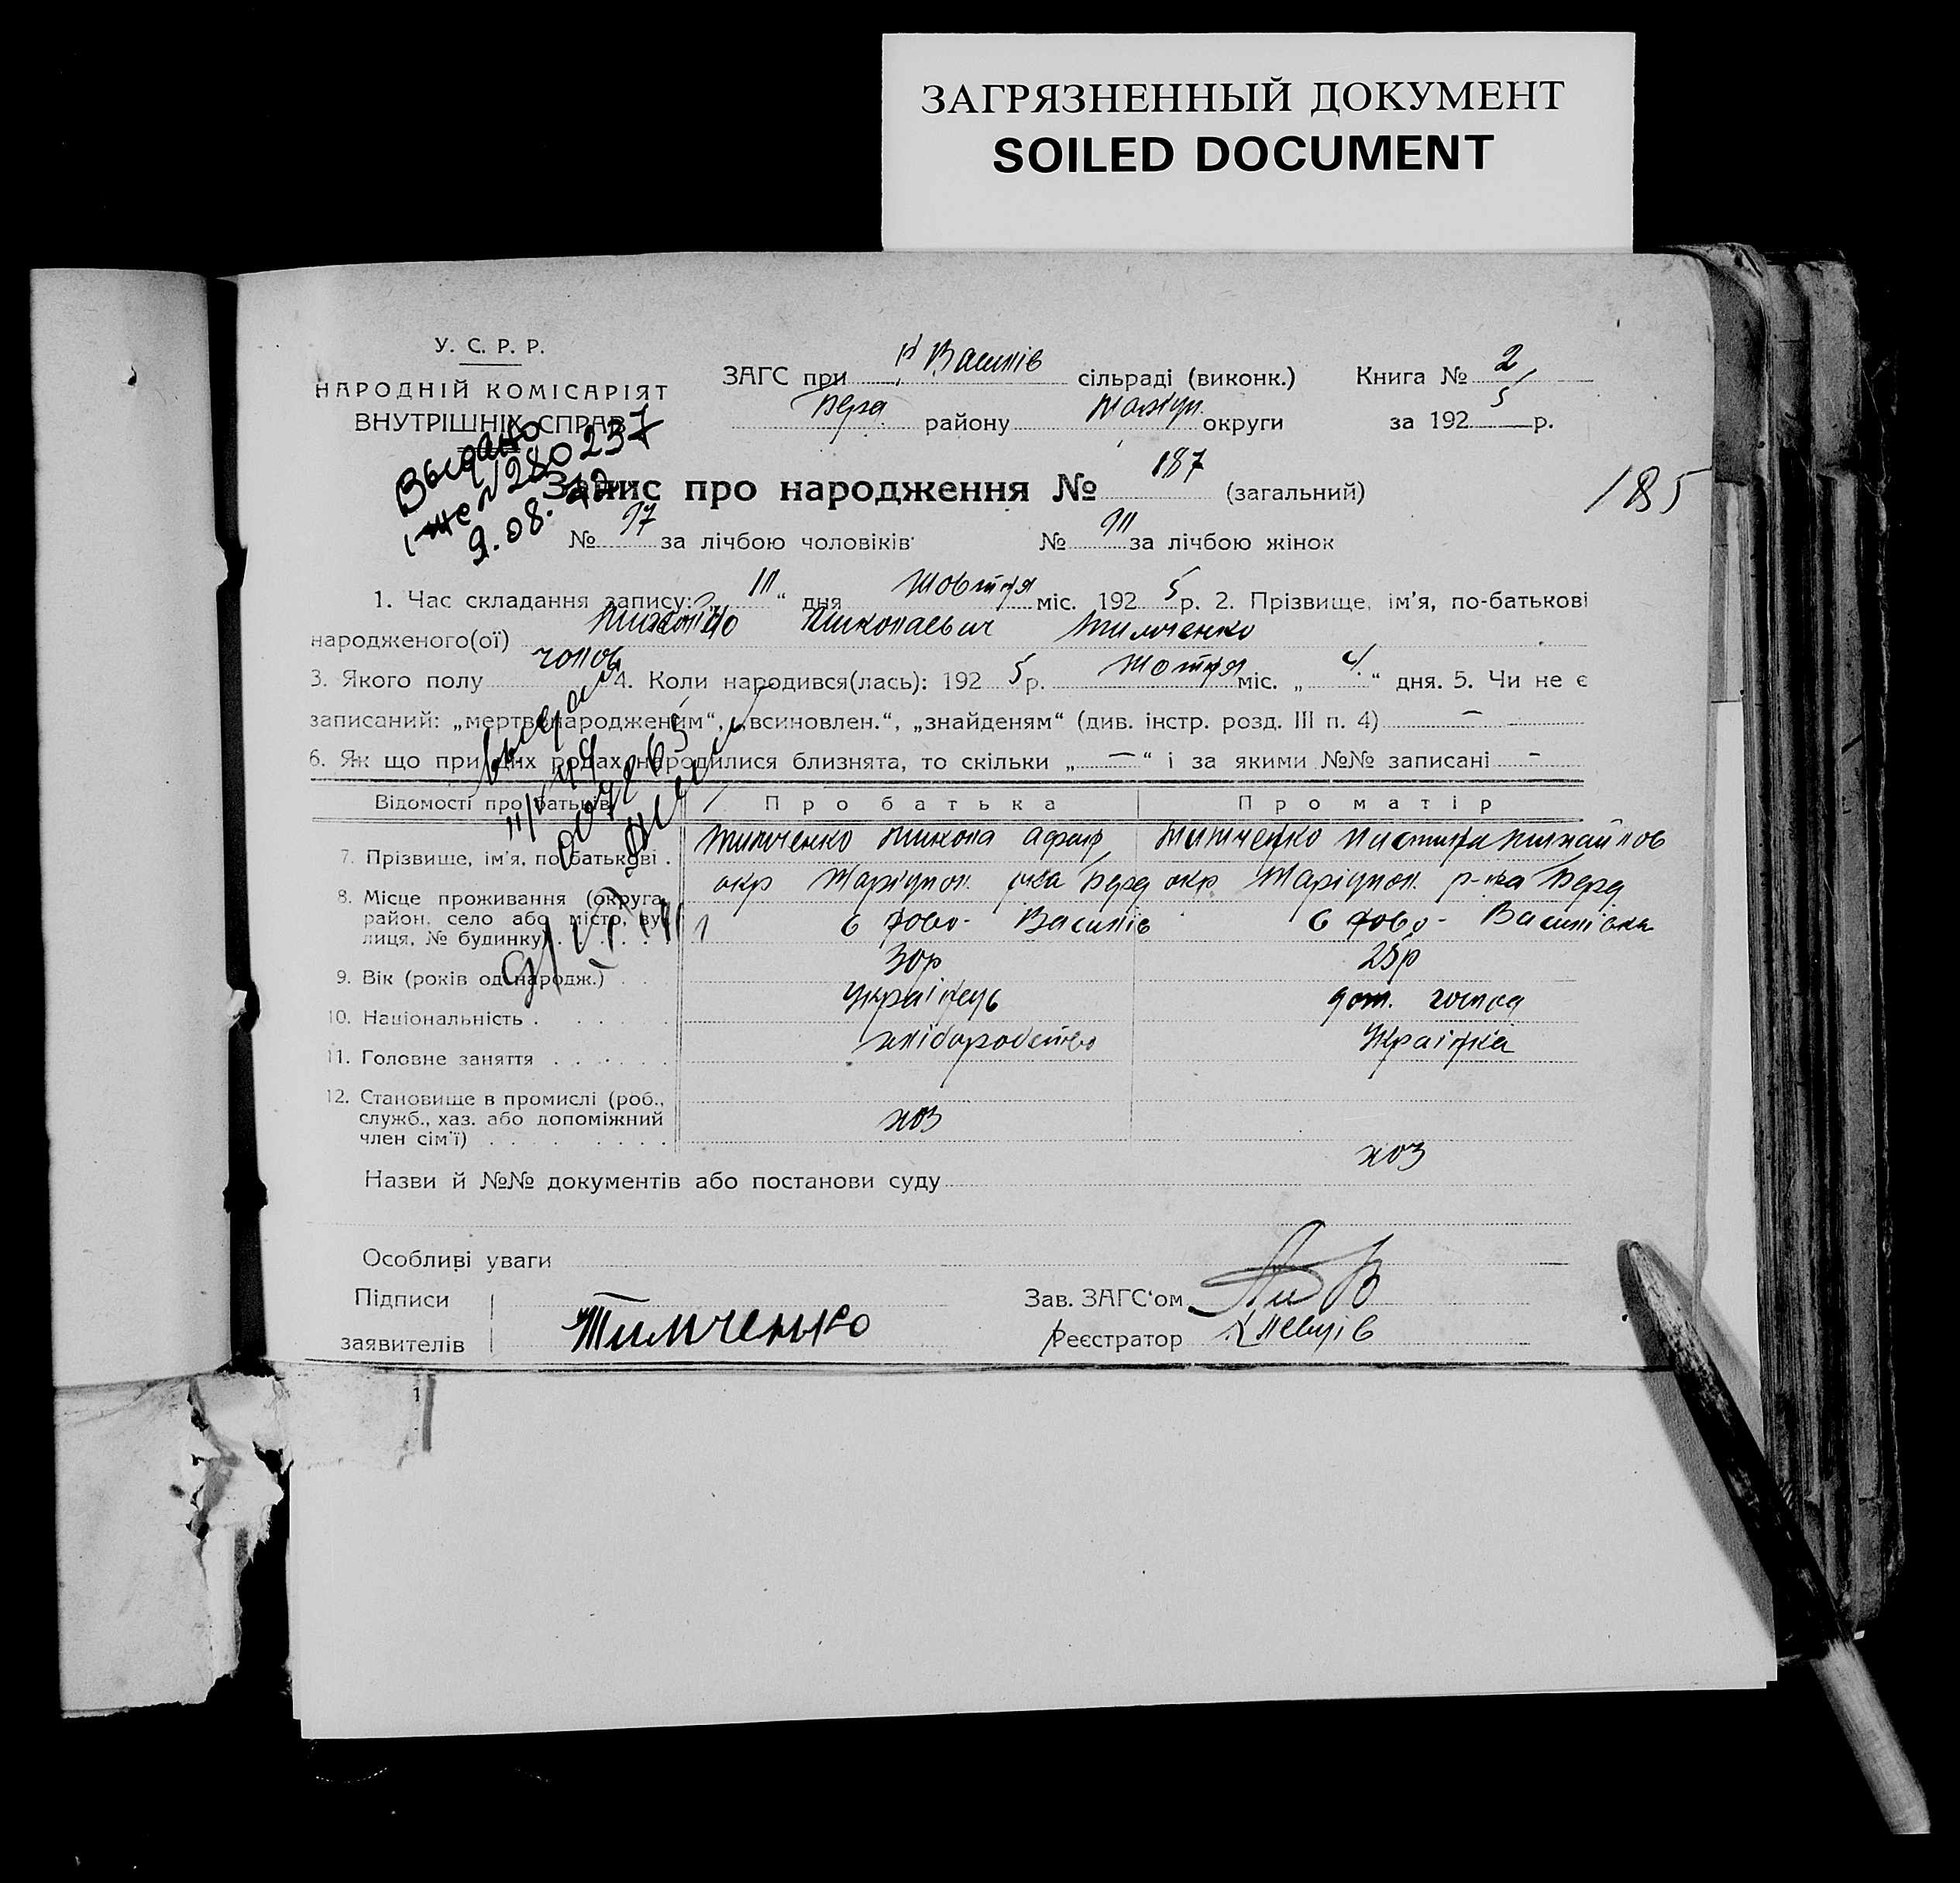 ЗАГРЯЗНЕННЫЙ ДОКУМЕНТ
SOILED DOCUMENT
У. С. Р. Р.
НАРОДНІЙ КОМІСАРІЯТ
ВНУТРІШНІХ СПРАВ
ЗАГС при Н Василів сільраді (виконк.) Книга № 2
Берд району Маріуп. округи за 1925 р.
Выдано
№ 280237
9.08.
Запис про народження № 187 (загальний)
185
№ 97 за лічбою чоловіків № за лічбою жінок
1. Час складання запису: „ “ дня Жовтня міс. 1925 р. 2. Прізвище, ім'я, по-батькові
народженого(ої) Николаевич Тимченко
3. Якого полу чолов 4. Коли народився(лась): 1925 р. Жотня міс. „ “ дня. 5. Чи не є
записаний: „мертвонародженим“, „всиновлен.“, „знайденям“ (див. інстр. розд. III п. 4) –
6. Як що при цих родах народилися близнята, то скільки „ — “ і за якими №№ записані -
Відомості про батьків Про батька Про матір
7. Прізвище, ім'я, по батькові . Тимченко Микола Тимченко Михайлов
8. Місце проживання (округа, окр Маріупол. р-на Берд окр Маріупол. р-на Берд
район, село або місто, ву- с Ново- Василів с Ново- Василівка
лиця, № будинку)
9. Вік (років од народж.) 30р 28р
10. Національність Українець дом. господ
11. Головне заняття хліборобство Українка
12. Становище в промислі (роб.,
служб., хаз. або допоміжний хоз
член сім'ї) хоз
Назви й №№ документів або постанови суду
Особливі уваги
Підписи Зав. ЗАГС'ом
заявителів Тимченко Реєстратор
1